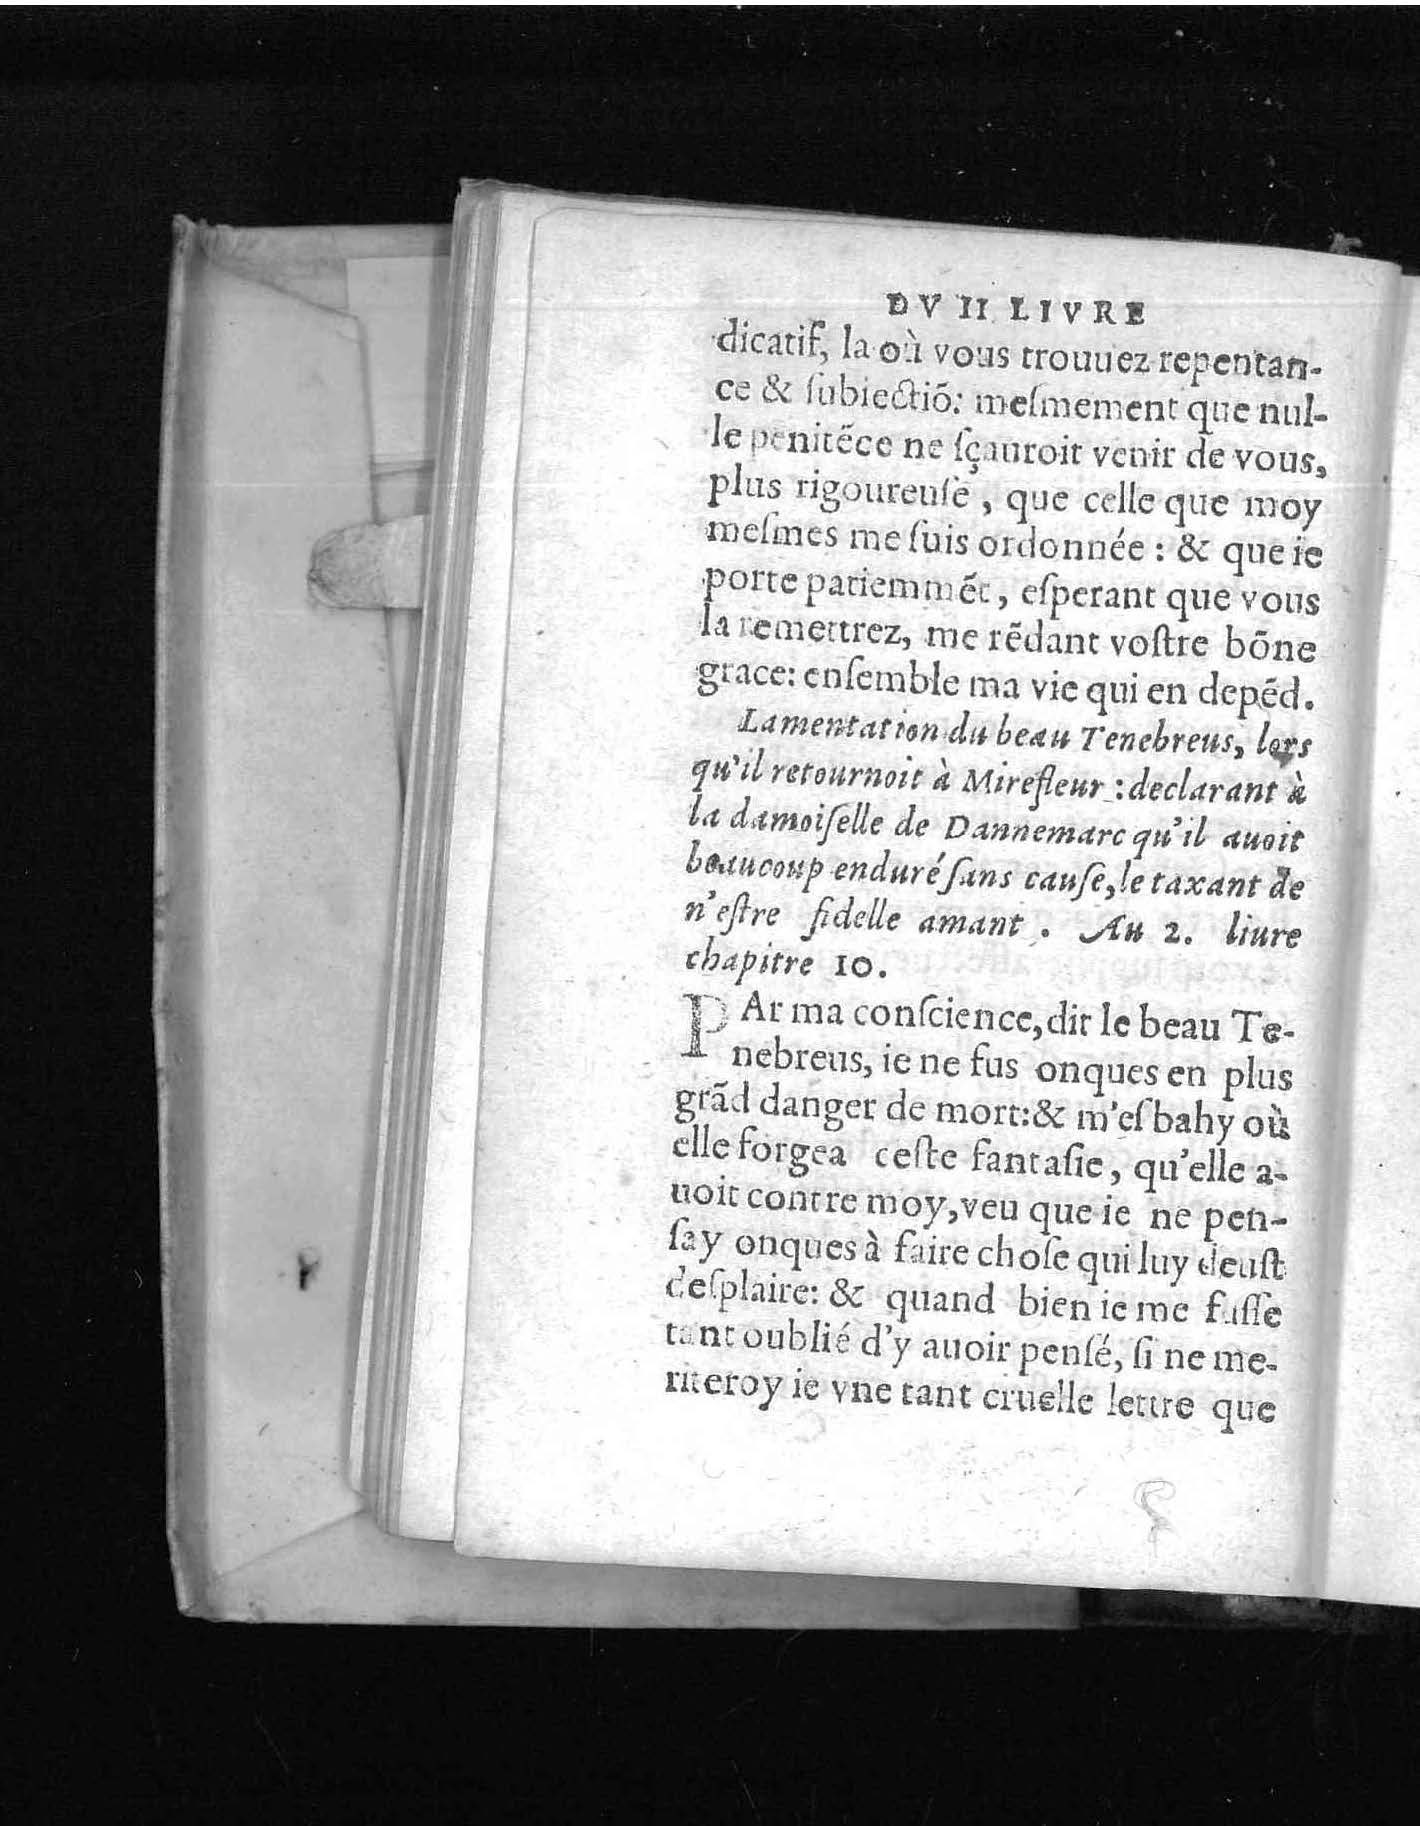 DV II LIVRE
dicatif, la où vous trouuez repentan-
ce & ſubiectiō: meſmement que nul-
le penitēce ne ſçauroit venir de vous,
plus rigoureuſe, que celle que moy
meſmes me ſuis ordonnée : & que ie
porte patiemmēt, eſperant que vous
la remettrez, me rēdant voſtre bōne
grace: enſemble ma vie qui en depēd.
Lamentation du beau Tenebreus, lors
qu'il retournoit à Mirefleur : declarant à
la damoiſelle de Dannemarc qu'il auoit
beaucoup enduré ſans cauſe, le taxant de
n'eſtre fidelle amant . Au 2. liure
chapitre 10.
PAr ma conſcience, dit le beau Te-
nebreus, ie ne fus onques en plus
grād danger de mort: & m'eſbahy où
elle forgea ceſte fantaſie, qu'elle a-
uoit contre moy, veu que ie ne pen-
ſay onques à faire choſe qui luy deuſt
deſplaire: & quand bien ie me fuſſe
tant oublié d'y auoir penſé, ſi ne me-
riteroy ie vne tant cruelle lettre que